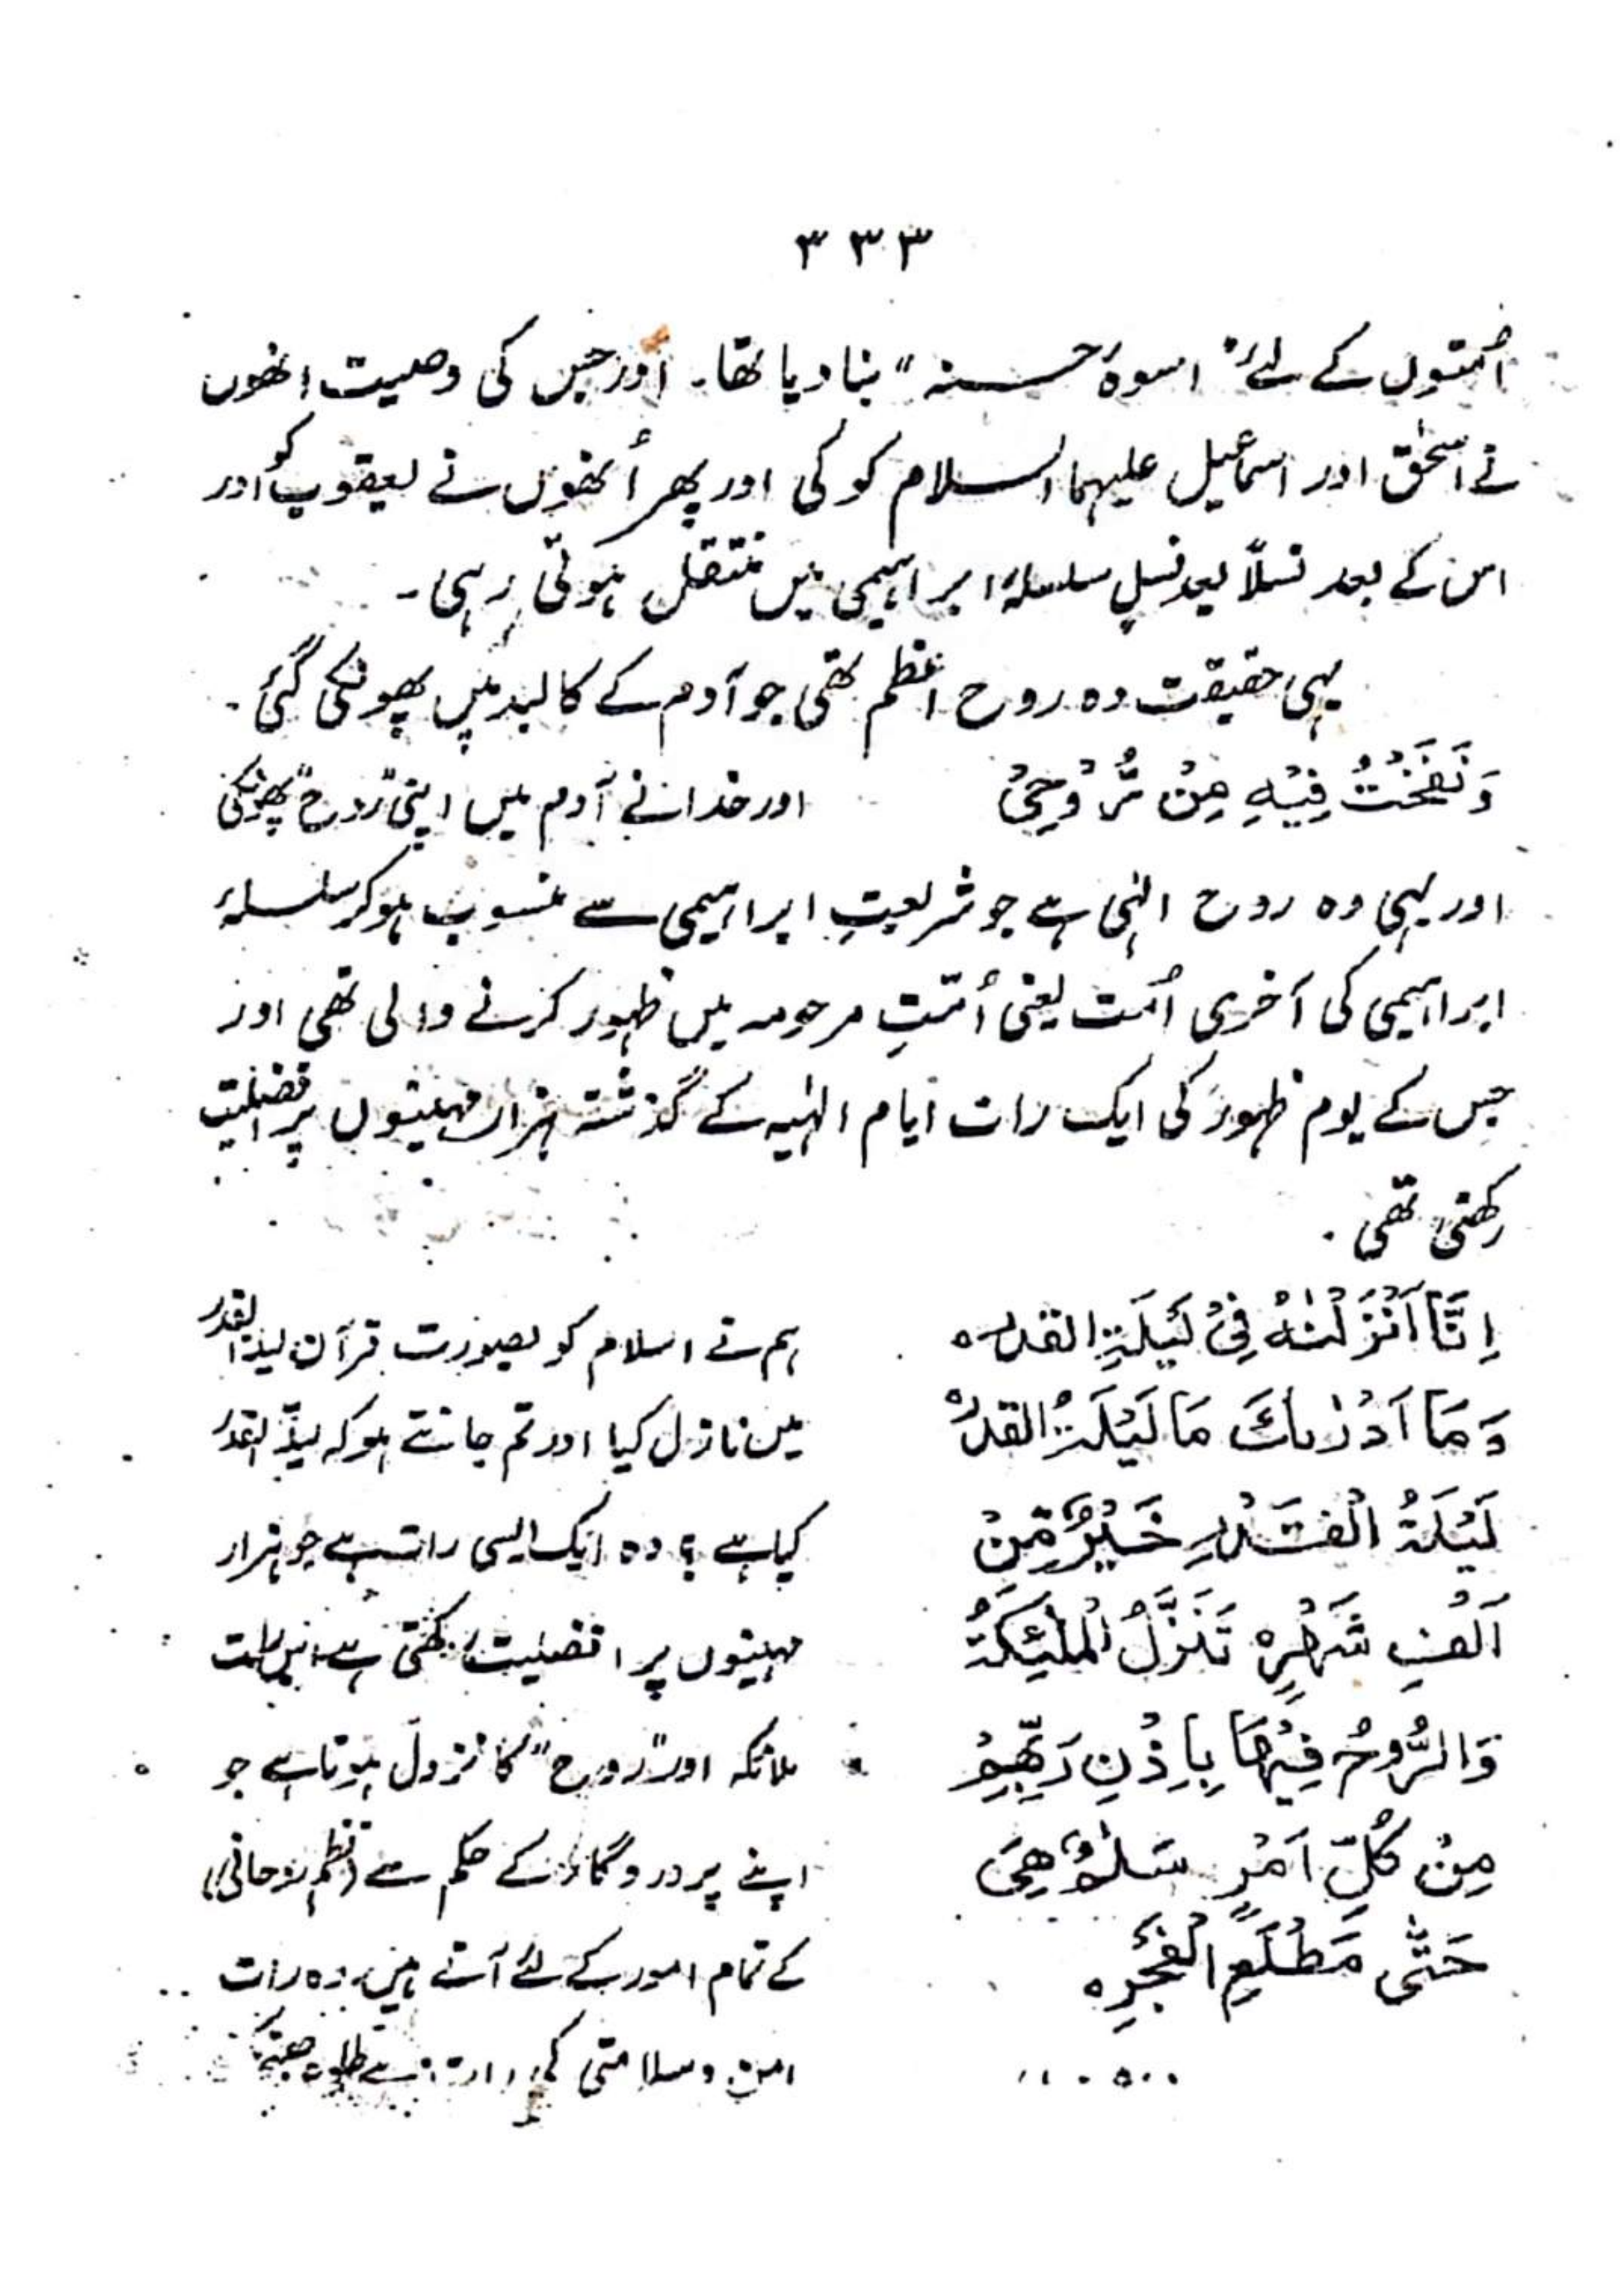 ۳۳۳
اُمتوں کے لئے "اسوۂ حسنہ" بنا دیا تھا۔ اور جس کی وصیت انھوں
نے اسحٰق اور اسماعیل علیہما السلام کو کی اور پھر اُنھوں نے یعقوب کو اور
اس کے بعد نسلاً بعد نسلٍ سلسلۂ ابراہیمی میں منتقل ہوتی رہی۔
یہی حقیقت وہ روح اعظم تھی جو آدم کے کالبد میں پھونکی گئی۔
وَنَفَخْتُ فِیْہِ مِنْ رُّوْحِیْ
اور خدا نے آدم میں اپنی "روح" پھونکی
اور یہی وہ روح الٰہی ہے جو شریعتِ ابراہیمی سے منسوب ہو کر سلسلۂ
ابراہیمی کی آخری اُمت یعنی اُمّتِ مرحومہ میں ظہور کرنے والی تھی اور
جس کے یوم ظہور کی ایک رات ایام الٰہیہ کے گذشتہ ہزار مہینوں پر افضلیت
رکھتی تھی۔
اِنَّا اَنْزَلْنٰہُ فِیْ لَیْلَۃِ القدرہ
وَمَا اَدْرٰىكَ مَا لَیْلَۃُ القدرہ
لَیْلَۃُ الْقَدْرِ خَیْرٌ مِّنْ
اَلْفِ شَهْرٍہ تَنَزَّلُ الْمَلٰٓئِكَۃُ
وَالرُّوحُ فِیْهَا بِاِذْنِ رَبِّهِمْ
مِنْ كُلِّ اَمْرٍ سَلٰمٌ هِیَ
حَتّٰى مَطْلَعِ الْفَجْرِہ
ہم نے اسلام کو بصورت قرآن لیلۃ القدر
میں نازل کیا اور تم جانتے ہو کہ لیلۃ القدر
کیا ہے؟ وہ ایک ایسی رات ہے جو ہزار
مہینوں پر افضلیت رکھتی ہے
ملائکہ اور "روح" کا نزول ہوتا ہے جو
اپنے پروردگار کے حکم سے (نظم روحانی)
کے تمام امور کے لئے آتے ہیں وہ رات
امن و سلامتی کی رات ہے